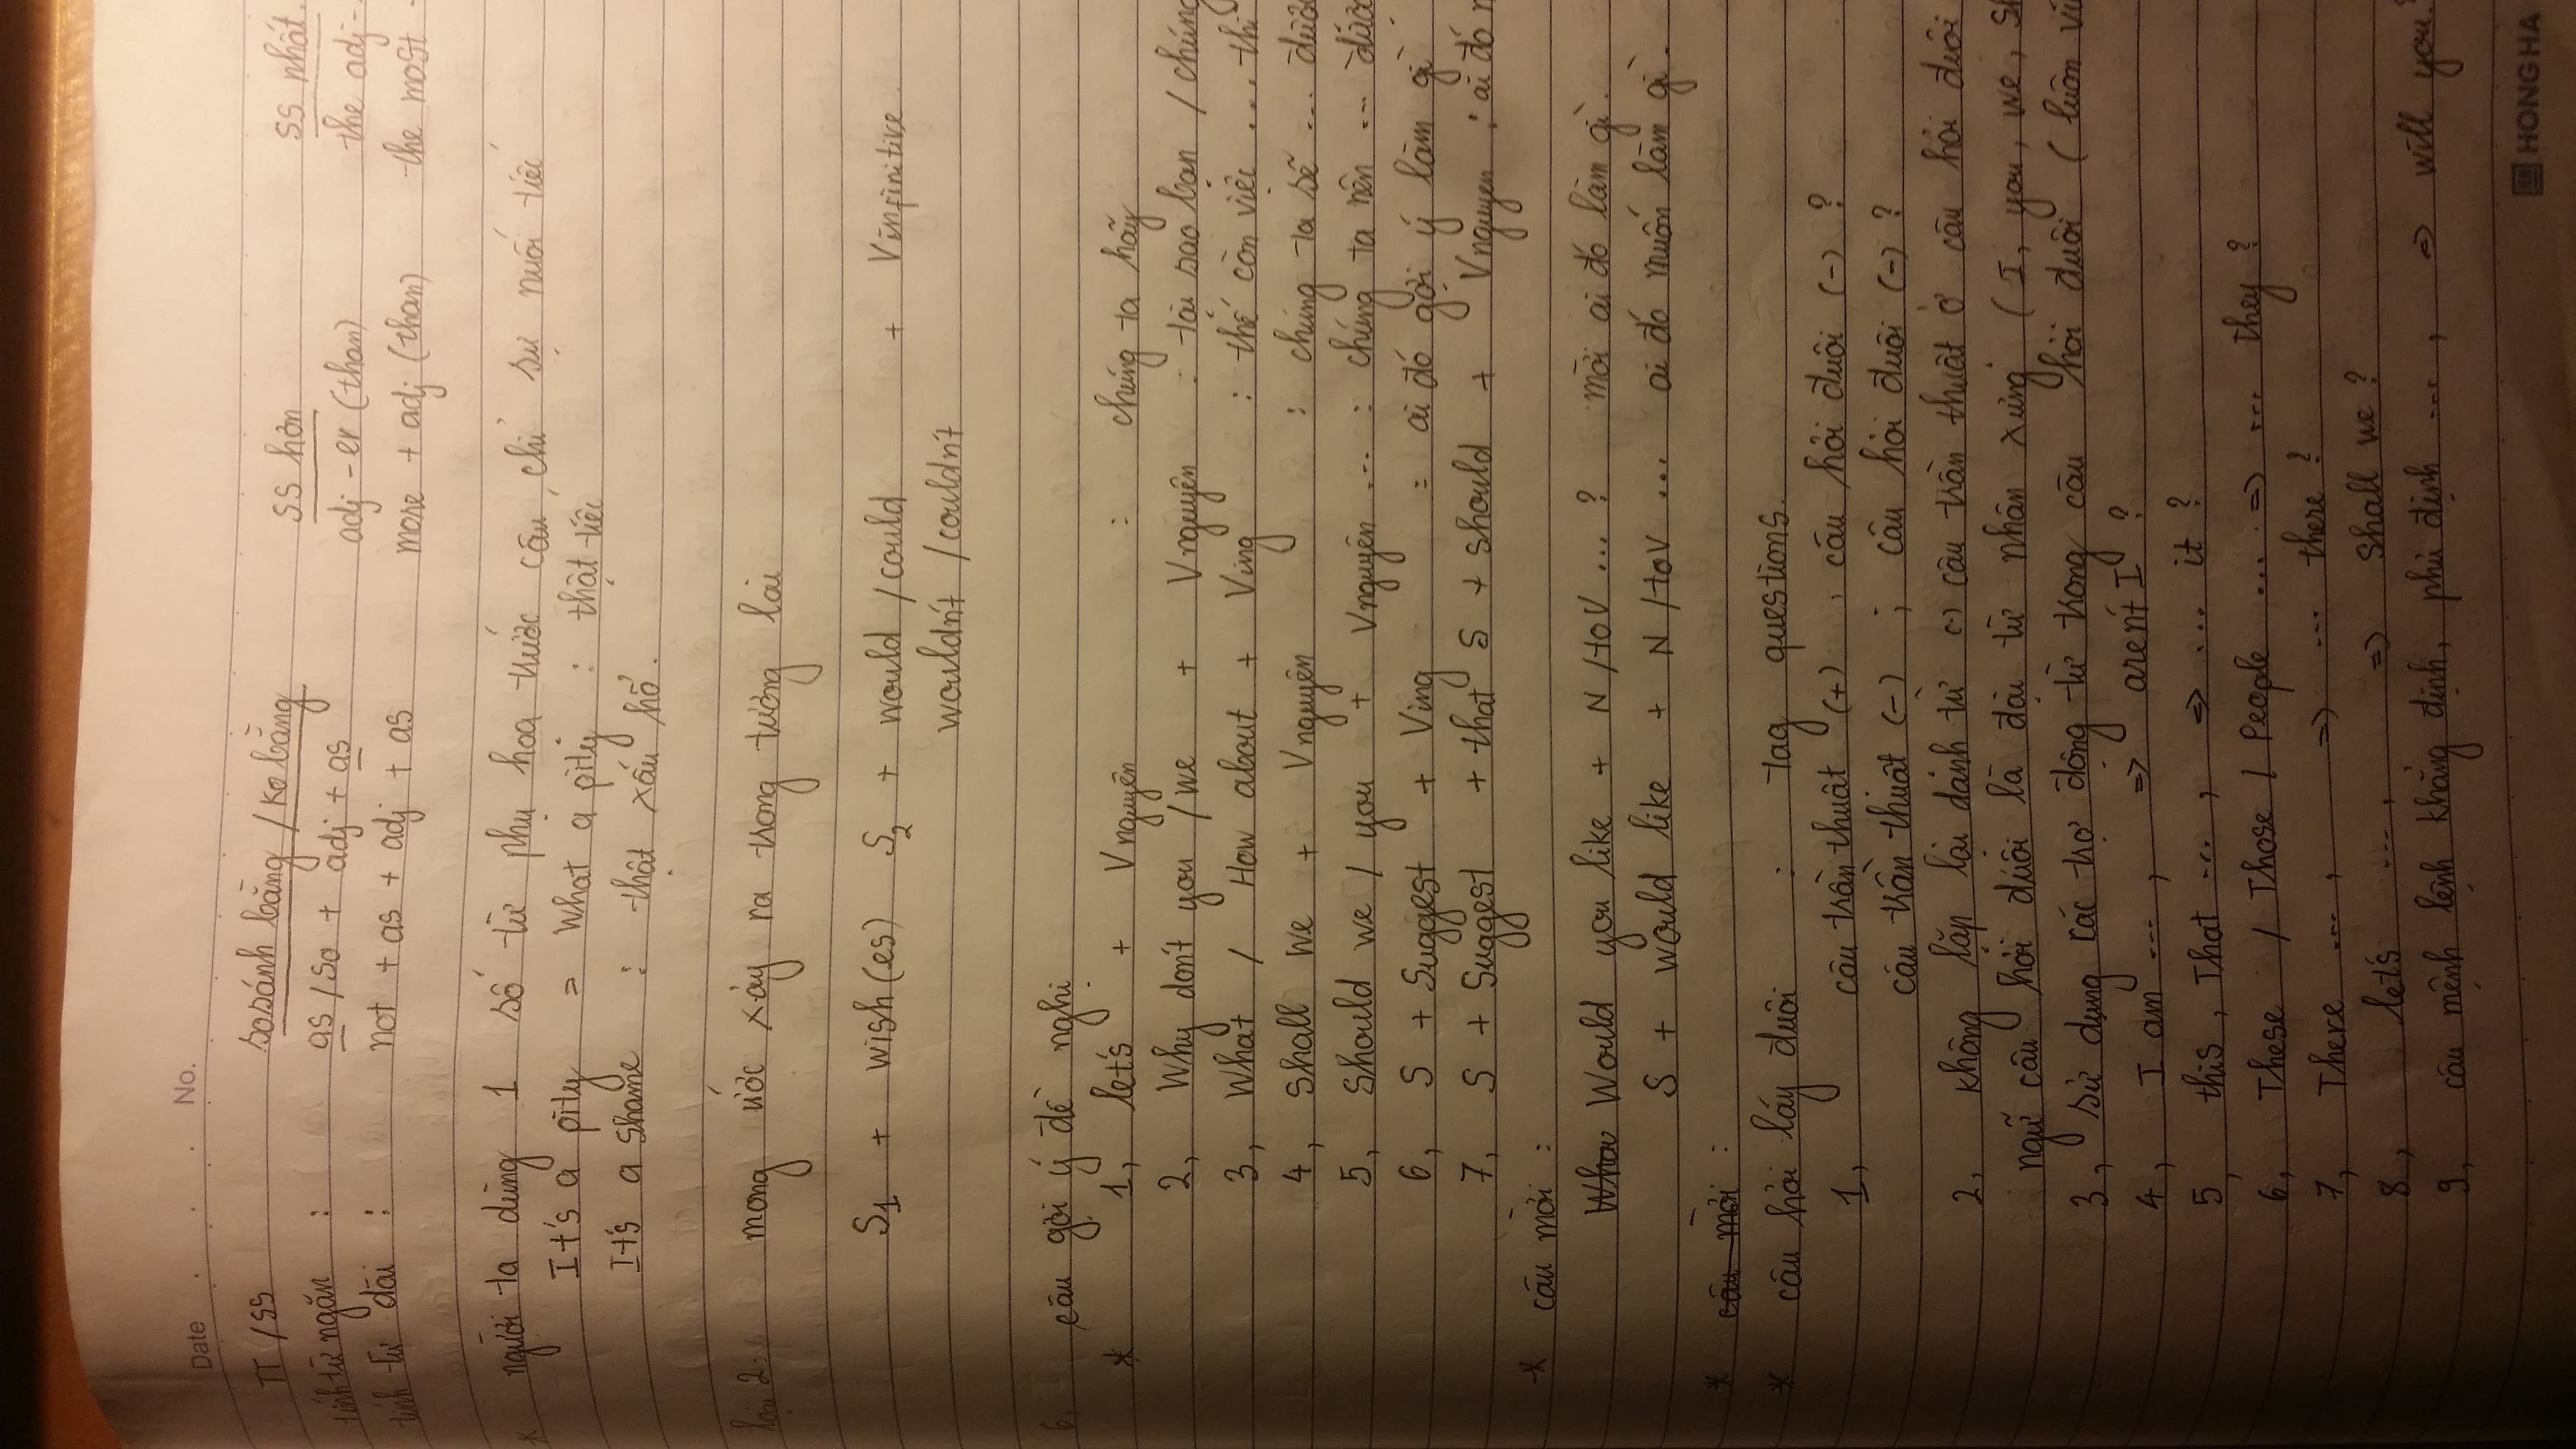 Date No.
TT / SS so sánh bằng / ko bằng SS hơn SS nhất
tính từ ngắn : as / so + adj + as adj - er (than) the adj -
tính từ dài : not + as + adj + as more + adj (than) the most
* người ta dùng 1 số từ phụ hoạ trước câu chỉ sự nuối tiếc
It's a pity = What a pity : thật tiếc
It's a shame : thật xấu hổ.
loại 2: mong ước xảy ra trong tương lai
S1 + wish(es) S2 + would / could + Vinfinitive
wouldn't / couldn't
6, câu gợi ý đề nghị
* 1, let's + Vnguyên : chúng ta hãy
2, Why don't you / we + Vnguyên : tại sao bạn / chúng
3, What / How about + Ving : thế còn việc ... thì
4, Shall we + Vnguyên : chúng ta sẽ ... được
5, Should we / you + Vnguyên ... : chúng ta nên ... được
6, S + Suggest + Ving = ai đó gợi ý làm gì
7, S + Suggest + that S + should + Vnguyen : ai đó
* câu mời :
Would you like + N / toV ... ? mời ai đó làm gì.
S + would like + N / toV ... ai đó muốn làm gì.
* câu mời :
* câu hỏi láy đuôi : tag questions.
1, câu trần thuật (+) , câu hỏi đuôi (-) ?
câu trần thuật (-) ; câu hỏi đuôi (-) ?
2, không lặp lại dánh từ (-) câu trần thuật ở câu hỏi đuôi
ngữ câu hỏi đuôi là đại từ nhân xưng ( I, you, we, s
3, sử dụng các trợ động từ trong câu hỏi đuôi ( luôn
4, I am ... , => aren't I ?
5, this, That ... , => ... it ?
6, These / Those / People ... => ... they ?
7, There ... , => ... there ?
8, let's ... , => shall we ?
9, câu mệnh lệnh khẳng định, phủ định ... , => will you?
HONG HA